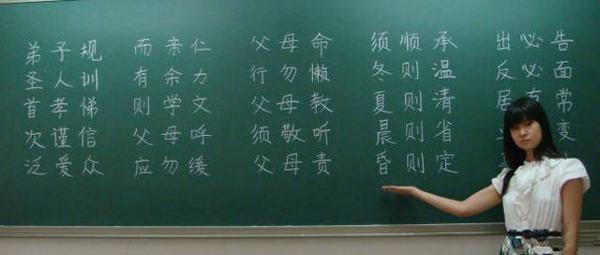 弟子规
圣人训
首孝悌
次谨信
泛爱众
而亲仁
有余力
则学文
父母呼
应勿缓
父母命
行勿懒
父母教
须敬听
父母责
须顺承
冬则温
夏则清
晨则省
昏则定
出必告
反必面
居有常
变